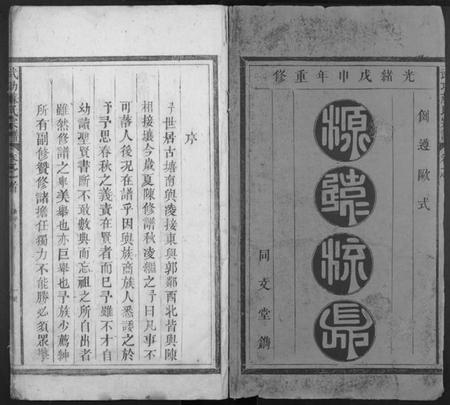 光緒戊申年重修
倣遵歐式
源遠流
同文堂鐫
序
予世居古墻南與凌接東與郭鄰西北皆與陳
相接壤今歲夏陳修譜秋凌繼之予曰凡事不
可落人後況在譜乎因與族商族人悉諉之於
予予思春秋之義責在賢者而已予雖不才自
幼讀聖賢書斷不敢數典而忘祖之所自出者
雖然修譜之舉美舉也亦巨舉也予族少薦紳
所有副修贊修諸擔任獨力不能勝必須眾擎